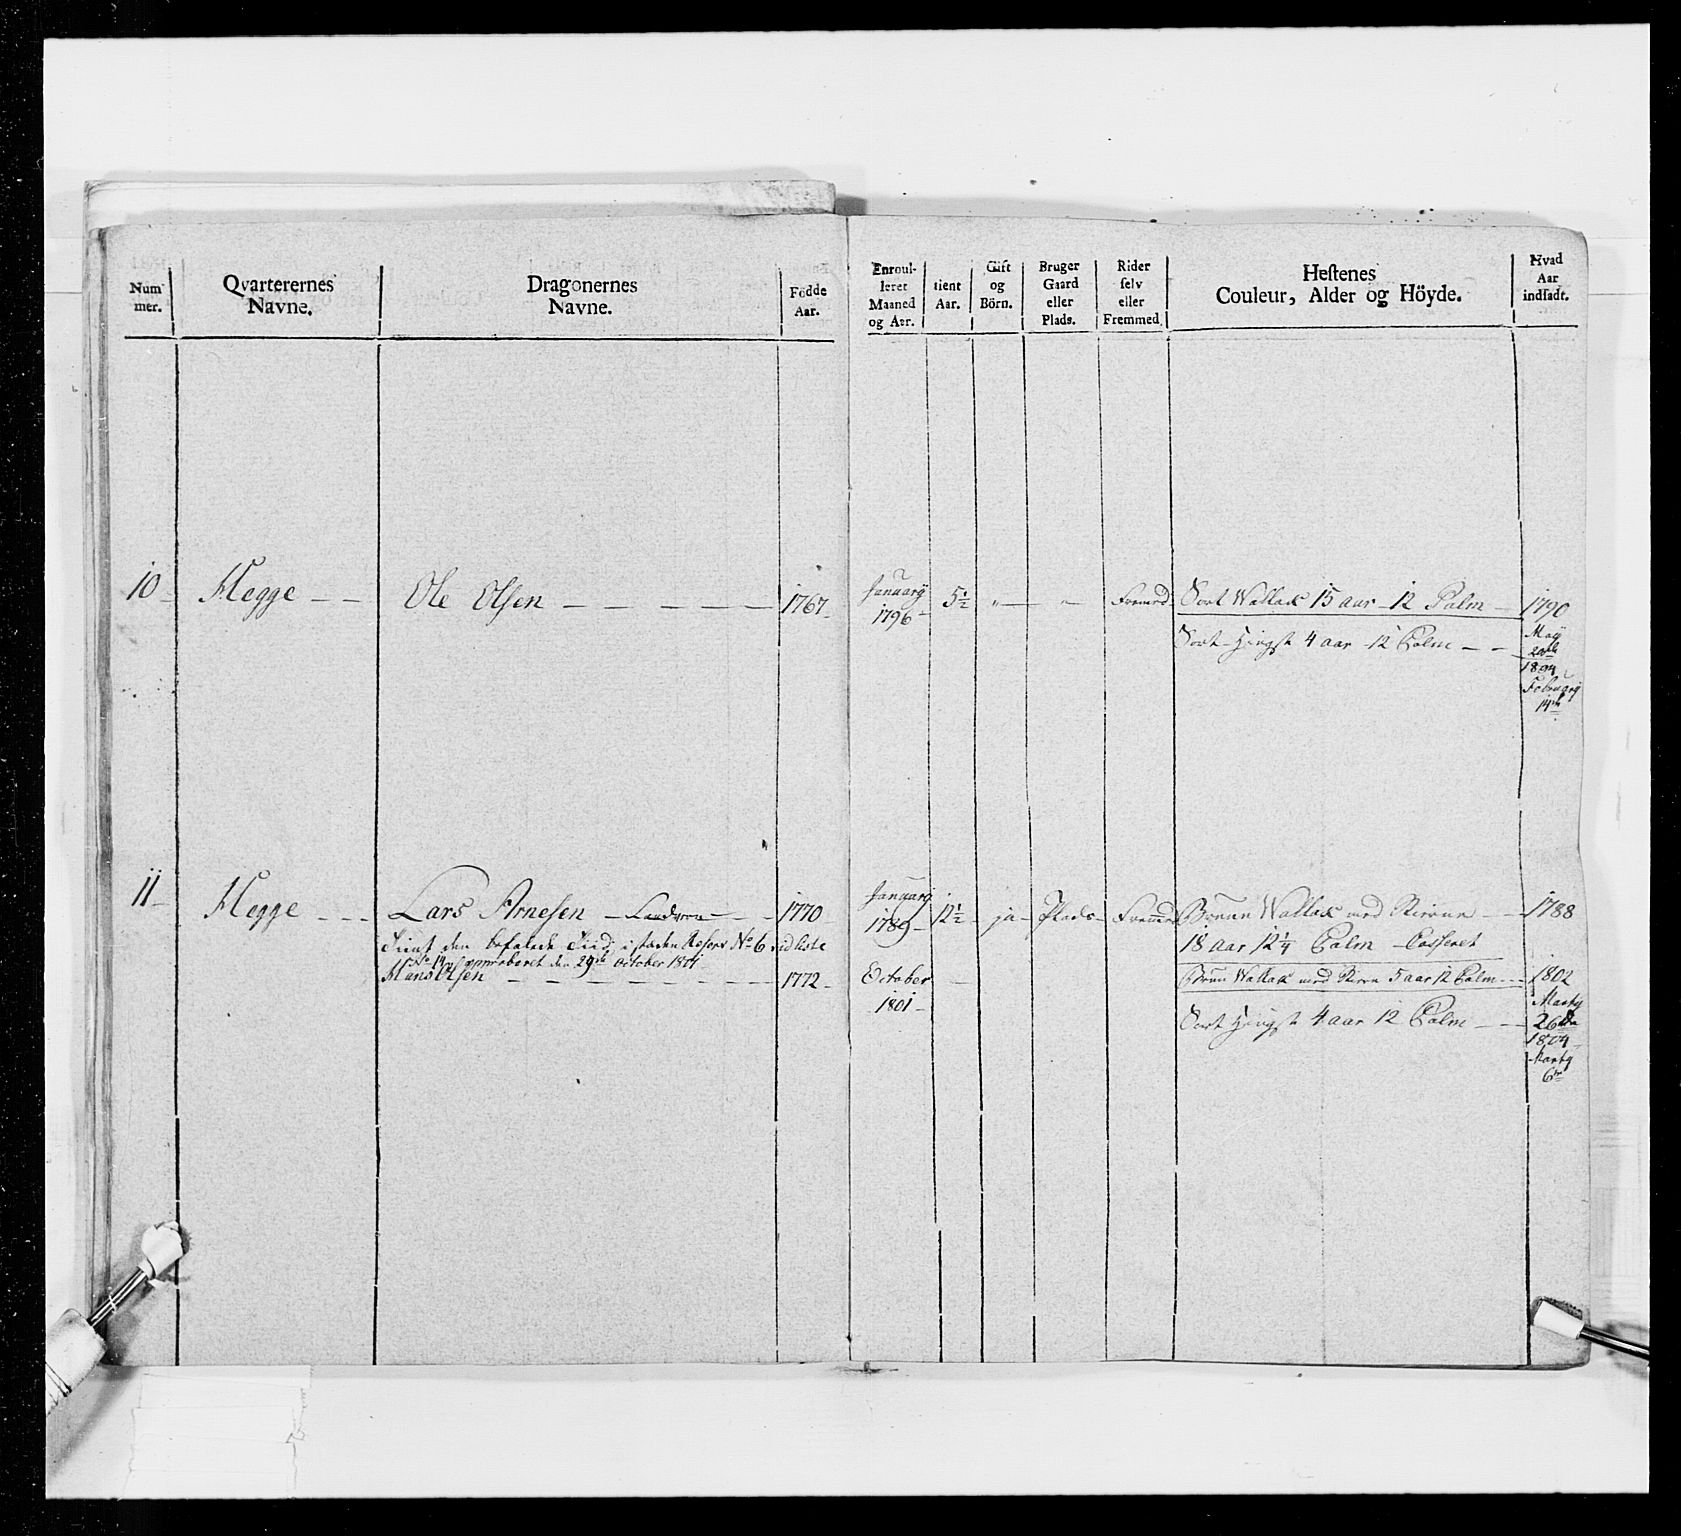 Num-
mer.
Qvarterernes
Navne.
Dragonernes
Navne.
Födde
Aar.
Enroul-
leret
Maaned
og Aar.
tient
Aar.
Gift
og
Börn.
Bruger
Gaard
eller
Plads.
Rider
selv
eller
Fremmed.
Hestenes
Couleur, Alder og Höyde.
Hvad
Aar
indsadt.
10 Hegge Ole Olsen 1767 Januarij 1796 5½ Fremd Sort Wallak 15 aar 12 Palm 1790
Sort Hingst 4 aar 12 Palm Maij
20de
1804
Februarij
14de
11 Hegge Lars Arnesen Landværn 1770 Januarij 1789 12½ ja Plads Fremed Bruun Wallak med Stierne 1788
18 aar 12¼ Palm Casseret
Tient den befalede Tiid, i steden Reserv No 6 vid liste
No 14 approberet den 29de October 1801
Hans Olsen 1772 October 1801 Bruun Wallak med Stierne 5 aar 12 Palm 1802
Sort Hingst 4 aar 12 Palm Martij
26de
1804
Martij
6te